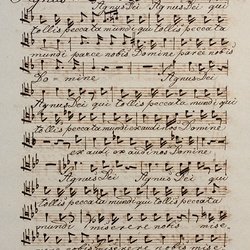 Agnus Agnus Dei Agnus Dei qui
tollis peccata mundi qui tollis peccata
mundi parce nobis Domine parce nobis
Do- mine Agnus Dei
Agnus Dei qui tollis peccata mundi qui
tollis peccata mundi exaudi nos Domine
exaudi exaudi nos Domine
Agnus Dei Agnus Dei qui
tollis peccata mundi qui tollis peccata
mundi miserere nobis mise,
nobis miserere nobis mise